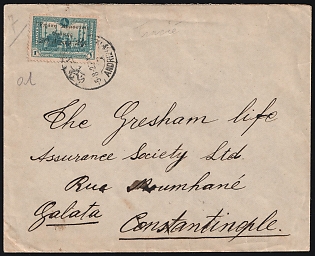 The Gresham life
Assurance Society Ltd.
Rue Moumhané
Galata Constantinople.